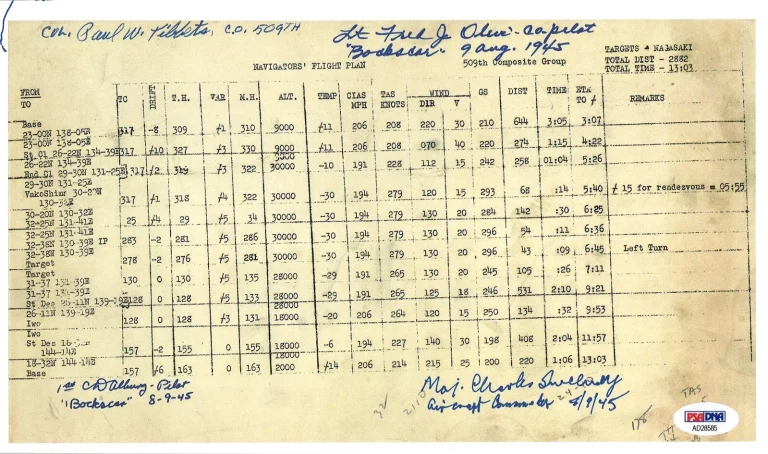 Col. Paul W. Tibbets, C.O. 509TH
Lt Fred J Olivi - Copilot
"Bockscar" 9 aug. 1945
NAVIGATORS' FLIGHT PLAN 509th Composite Group
TARGETS - NAGASAKI
TOTAL DIST - 2882
TOTAL TIME - 13:03
FROM TO TC DRIFT T.H. VAR M.H. ALT. TEMP CIAS MPH TAS KNOTS WIND DIR V GS DIST TIME ETA TO REMARKS
Base
23-00N 138-05E 317 -8 309 /1 310 9000 /11 206 208 220 30 210 644 3:05 3:07
23-00N 138-05E
St Cl 26-22N 134-39E 317 /10 327 /3 330 9000 /11 206 208 070 40 220 274 1:15 4:22
26-22N 134-39E
End Cl 29-30N 131-25E 317 /2 319 /3 322 30000 -10 191 228 112 15 242 258 01:04 5:26
29-30N 131-25E
YakoShima 30-20N
130-32E 317 /1 318 /4 322 30000 -30 194 279 120 15 293 68 :14 5:40 / 15 for rendezvous = 05:55
30-20N 130-32E
32-25N 131-41E 25 /4 29 /5 34 30000 -30 194 279 130 20 284 142 :30 6:25
32-25N 131-41E
32-38N 130-39E IP 283 -2 281 /5 286 30000 -30 194 279 130 20 296 54 :11 6:36
32-38N 130-39E
Target 278 -2 276 /5 281 30000 -30 194 279 130 20 296 43 :09 6:45 Left Turn
Target
31-37 131-39E 130 0 130 /5 135 28000 -29 191 265 130 20 245 105 :26 7:11
31-37 131-39E
St Des 26-11N 139-19E 128 0 128 /5 133 28000 -29 191 265 125 18 246 531 2:10 9:21
26-11N 139-19E
Iwo 128 0 128 /3 131 18000 -20 206 264 120 15 250 134 :32 9:53
Iwo
St Des 18-32N
144-14E 157 -2 155 0 155 18000 -6 194 227 140 30 198 408 2:04 11:57
18-32N 144-14E
Base 157 /6 163 0 163 2000 /14 206 214 215 25 200 220 1:06 13:03
1st CD Albury - Pilot
"Bockscar" 8-9-45
Maj. Charles Sweeney
Aircraft Commander 8/9/45
TAS
PSA/DNA
AD28585